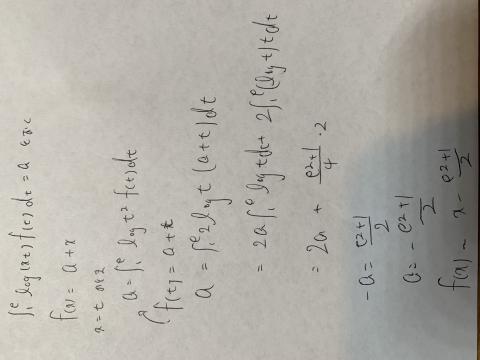 ∫₁ᵉ log(xt) f(t) dt = a とおく
f(x) = a + x
x = t のとき
a = ∫₁ᵉ log t² f(t) dt
f(t) = a + t
a = ∫₁ᵉ 2 log t (a+t) dt
= 2a ∫₁ᵉ log t dt + 2 ∫₁ᵉ (log t) t dt
= 2a + (e²+1)/4 · 2
-a = (e²+1)/2
a = - (e²+1)/2
f(x) = x - (e²+1)/2